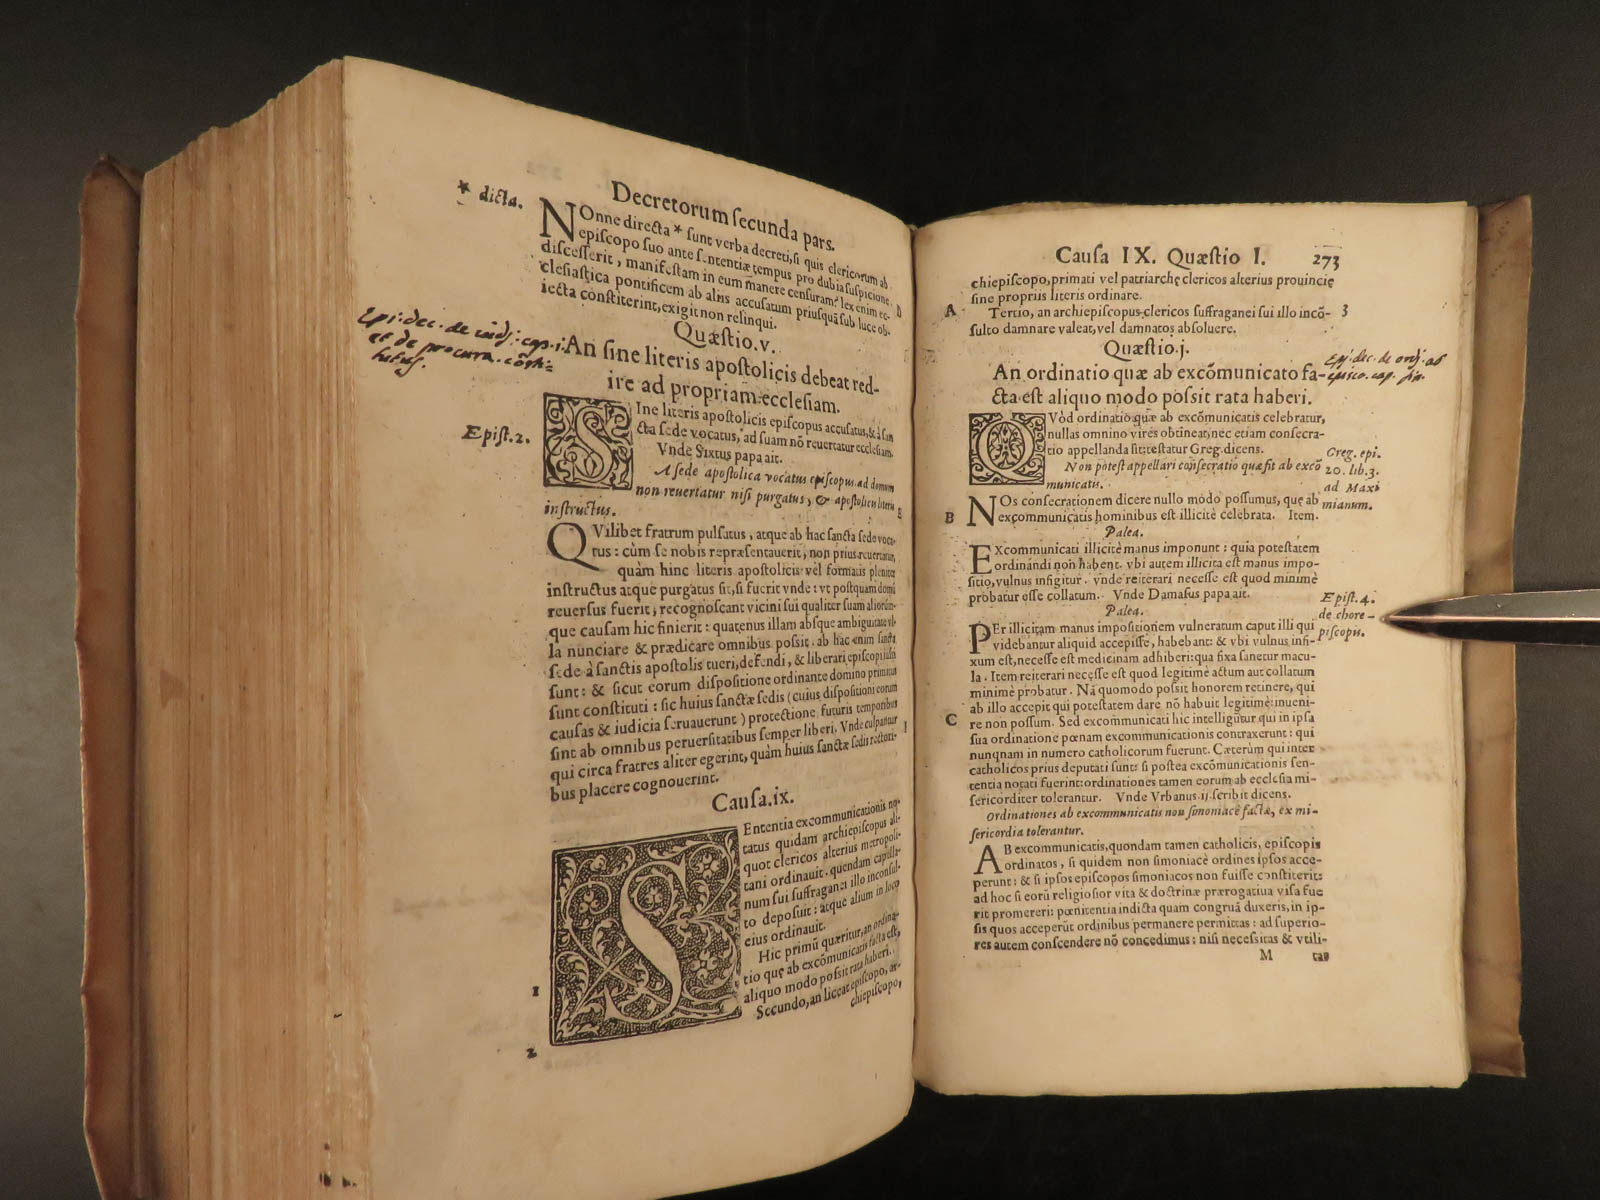 Decretorum ſecunda pars.
* dicta.
NOnne directa * ſunt verba decreti, ſi quis clericorum ab
epiſcopo ſuo ante ſententiæ tempus pro dubia ſuſpicione
diſceſſerit, manifeſtam in eum manere cenſuram? lex enim ec-
cleſiaſtica pontificem ab aliis accuſatum priuſquā ſub luce ob-
iecta conſtiterint, exigit non relinqui.
D
Quæſtio.v.
Epi. dec. de cap. i.
et de procura.
An ſine literis apoſtolicis debeat red-
ire ad propriam eccleſiam.
SIne literis apoſtolicis epiſcopus accuſatus, & à ſan
cta ſede vocatus, ad ſuam nō reuertatur eccleſiam.
Vnde Sixtus papa ait.
Epiſt.2.
A ſede apoſtolica vocatus epiſcopus ad domum
non reuertatur niſi purgatus, & apoſtolicis literis
inſtructus.
E
QVilibet fratrum pulſatus, atque ab hac ſancta ſede voca-
tus: cùm ſe nobis repræſentauerit, non prius reuertatur,
quàm hinc literis apoſtolicis vel formatis pleniter
inſtructus atque purgatus ſit, ſi fuerit vnde: vt poſtquam domū
reuerſus fuerit, recognoſcant vicini ſui qualiter ſuam aliorūm-
que cauſam hic finierit: quatenus illam abſque ambiguitate vl-
la nunciare & prædicare omnibus poſsit. ab hac enim ſancta
ſede à ſanctis apoſtolis tueri, defendi, & liberari epiſcopi iuſſi
ſunt: & ſicut eorum diſpoſitione ordinante domino primitus
ſunt conſtituti: ſic huius ſanctæ ſedis (cuius diſpoſitioni eorum
cauſas & iudicia ſeruauerunt) protectione futuris temporibus
ſint ab omnibus peruerſitatibus ſemper liberi. Vnde culpantur
qui circa fratres aliter egerint, quàm huius ſanctæ ſedis rectori-
bus placere cognouerint.
Cauſa.ix.
SEntentia excommunicationis no-
tatus quidam archiepiſcopus ali-
quot clericos alterius metropoli-
tani ordinauit. quendam capella-
num ſui ſuffraganei illo inconſul-
to depoſuit: atque alium in loco
eius ordinauit.
1
Hic primū quæritur, an ordina-
tio quę ab excōmunicatis facta eſt,
aliquo modo poſsit rata haberi.
2
Secundo, an liceat epiſcopo, ar-
chiepiſcopo,
Cauſa IX. Quæſtio I. 273
chiepiſcopo, primati vel patriarchę clericos alterius prouincię
ſine propriis literis ordinare.
A
Tertio, an archiepiſcopus clericos ſuffraganei ſui illo incō- 3
ſulto damnare valeat, vel damnatos abſoluere.
Quæſtio.j.
An ordinatio quæ ab excōmunicato fa-
cta eſt aliquo modo poſsit rata haberi.
Epi. dec. de ordi. ab
episco. cap. fin.
QVòd ordinatio quæ ab excōmunicatis celebratur,
nullas omnino vires obtineat, nec etiam conſecra-
tio appellanda ſit: teſtatur Greg. dicens.
Non poteſt appellari conſecratio quæ fit ab excō
municatis.
Greg. epi.
20. lib.3.
ad Maxi
mianum.
B
NOs conſecrationem dicere nullo modo poſſumus, quę ab
excommunicatis hominibus eſt illicitè celebrata. Item.
Palea.
EXcommunicati illicitè manus imponunt: quia poteſtatem
ordinandi non habent. vbi autem illicita eſt manus impo-
ſitio, vulnus infigitur. vnde reiterari neceſſe eſt quod minimè
probatur eſſe collatum. Vnde Damaſus papa ait.
Palea.
Epiſt.4.
de chore-
piſcopis.
PEr illicitam manus impoſitionem vulneratum caput illi qui
videbantur aliquid accepiſſe, habebant: & vbi vulnus infi-
xum eſt, neceſſe eſt medicinam adhiberi: qua fixa ſanetur macu-
la. Item reiterari neceſſe eſt quod legitimè actum aut collatum
minimè probatur. Nā quomodo poſsit honorem retinere, qui
ab illo accepit qui poteſtatem dare nō habuit legitimè: inueni-
C
re non poſſum. Sed excommunicati hic intelligūtur qui in ipſa
ſua ordinatione pœnam excommunicationis contraxerunt: qui
nunquam in numero catholicorum fuerunt. Cæterùm qui inter
catholicos prius deputati ſunt: ſi poſtea excōmunicationis ſen-
tentia notati fuerint: ordinationes tamen eorum ab eccleſia mi-
ſericorditer tolerantur. Vnde Vrbanus.ij. ſcribit dicens.
Ordinationes ab excommunicatis non ſimoniacè factæ, ex mi-
ſericordia tolerantur.
AB excommunicatis, quondam tamen catholicis, epiſcopis
ordinatos, ſi quidem non ſimoniacè ordines ipſos acce-
perunt: & ſi ipſos epiſcopos ſimoniacos non fuiſſe conſtiterit:
ad hoc ſi eorū religioſior vita & doctrinæ prærogatiua viſa fue
rit promereri: pœnitentia indicta quam congruā duxeris, in ip-
ſis quos acceperūt ordinibus permanere permittas: ad ſuperio-
res autem conſcendere nō concedimus: niſi neceſsitas & vtili-
M tas